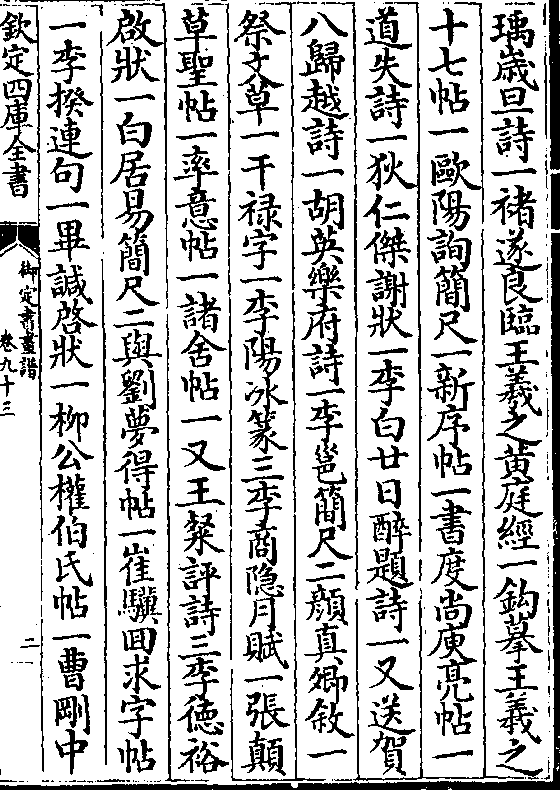 瑀歲旦詩一褚遂良臨王羲之黄庭經一鈎摹王羲之
十七帖一歐陽詢簡尺一新序帖一書度尚庾亮帖一
道失詩一狄仁傑謝狀一李白廿日醉題詩一又送賀
八歸越詩一胡英樂府詩一李邕簡尺二顔真卿敘一
祭文草一干禄字一李陽冰篆三李商隐月賦一張顛
草聖帖一率意帖一諸舍帖一又王粲評詩三李徳裕
啟狀一白居易簡尺二與劉夢得帖一崔驥囬求字帖
一李揆連句一畢諴啓狀一柳公權伯氏帖一曹剛中
欽定四庫全書
御定書畫譜
卷九十三
二